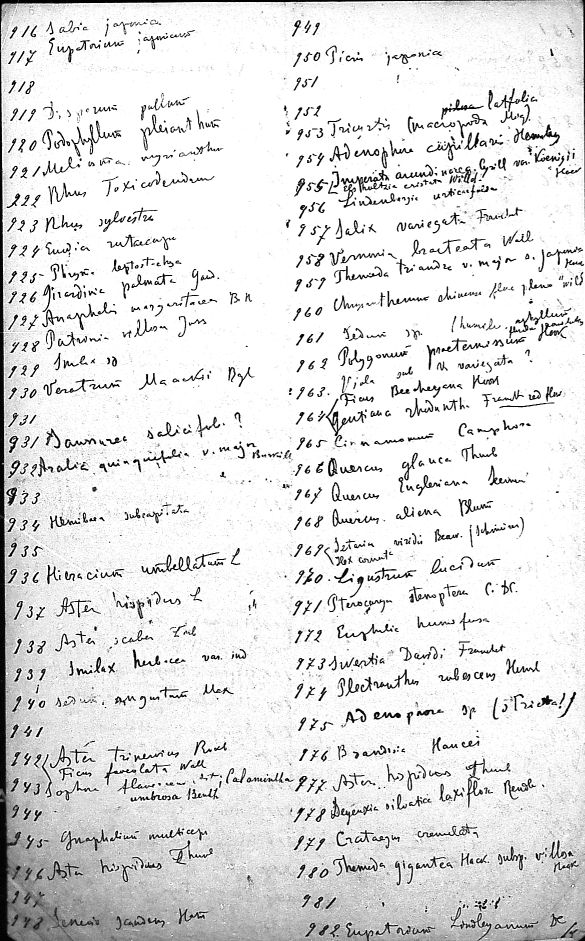 916 Sabia japonica
917 Eupatorium japonicum
918
919 Disporum pullum
920 Podophyllum pleianthum
921 Meliosma myrianthum
222 Rhus Toxicodendum
923 Rhus sylvestra
924 Evodia rutaecarpa
925 Phryma leptostachya
926 Girardinia palmata Gaud.
927 Anaphalis margaritacea B H
928 Patrinia villosa Juss
929 Smilax sp
930 Veratrum Maackii Rgl
931
931 Saussurea salicifol. ?
932 Aralia quinquefolia v. major
933
934 Hemiboea subcapitata
935
936 Hieracium umbellatum L
937 Aster hispidus L
938 Aster scaber
939 Smilax herbacea var. ind
940 Sedum angustum Max
941
942 Aster trinervius Roxb
Ficus foveolata Wall
943 Sophora flavescens Ait, Calamintha
umbrosa Benth
944
945 Gnaphalium multiceps
946 Aster hispidus Thunb
947
948 Senecio scandens Ham
949
950 Picris japonica
951
952
953 Tricyrtis (macropoda Miq) latifolia
954 Adenophora capillaris Hemsley
955 Imperata arundinacea Cyrill var Koenigii
Hack
Elsholtzia cristata Willd.
956 Lindenbergia urticaefolia
957 Salix variegata Franchet
958 Vernonia bracteata Wall
959 Themeda triandra v. major s. japonica
960 Chrysanthemum chinense flore pleno "wild"
961 Sedum sp.
962 Polygonum praetermissum Hook
963. Viola sub variegata ?
Ficus Beecheyana Hook
964 Gentiana rhodantha Franch red flow
965 Cinnamomum Camphora
966 Quercus glauca Thunb
967 Quercus Engleriana Seemen
968 Quercus aliena Blum
969 Setaria viridis Beauv. (Setinium)
Ilex cornuta
970. Ligustrum lucidum
971 Pterocarya stenoptera C. DC.
972 Euphorbia humifusa
973 Swertia Davidi Franchet
974 Plectranthus rubescens Hemsl
975 Adenophora sp
976 Brandisia Hancei
977 Aster hispidus Thunb
978 Deyeuxia silvatica laxiflora Rendle.
979 Crataegus crenulata
980 Themeda gigantea Hack subsp. villosa
Hack
981
982 Eupatorium Lindleyanum DC